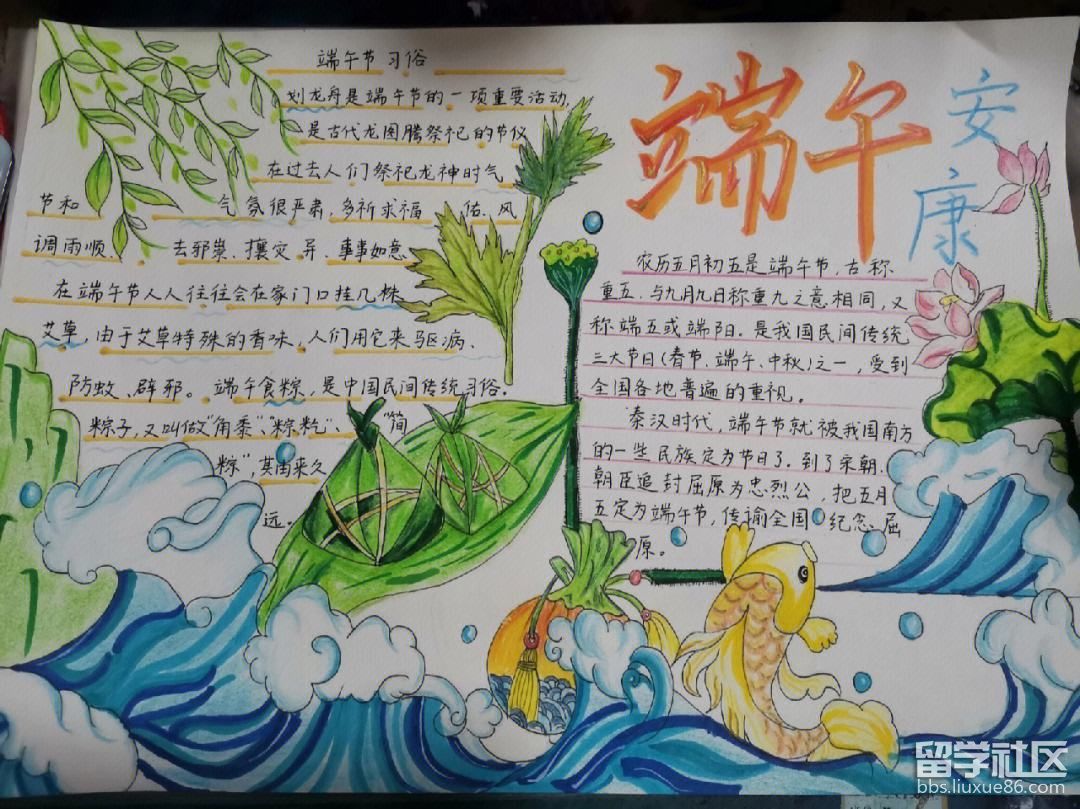 端午节习俗
划龙舟是端午节的一项重要活动,
是古代龙图腾祭祀的节仪
在过去人们祭祀龙神时气
节和 气氛很严肃,多祈求福 佑、风
调雨顺、 去邪祟、攘灾 异、事事如意
在端午节人人往往会在家门口挂几株
艾草,由于艾草特殊的香味,人们用它来驱病、
防蚊、辟邪。端午食粽,是中国民间传统习俗。
粽子,又叫做"角黍"、"粽籺"、 "筒
粽"其由来久
远。
端午
安康
农历五月初五是端午节,古称
重五,与九月九日称重九之意相同,又
称端五或端阳。是我国民间传统
三大节日(春节、端午、中秋)之一,受到
全国各地普遍的重视。
秦汉时代,端午节就被我国南方
的一些民族定为节日了。到了宋朝,
朝臣追封屈原为忠烈公,把五月
五定为端午节,传谕全国 纪念屈
原。
留学社区
bbs.liuxue86.com